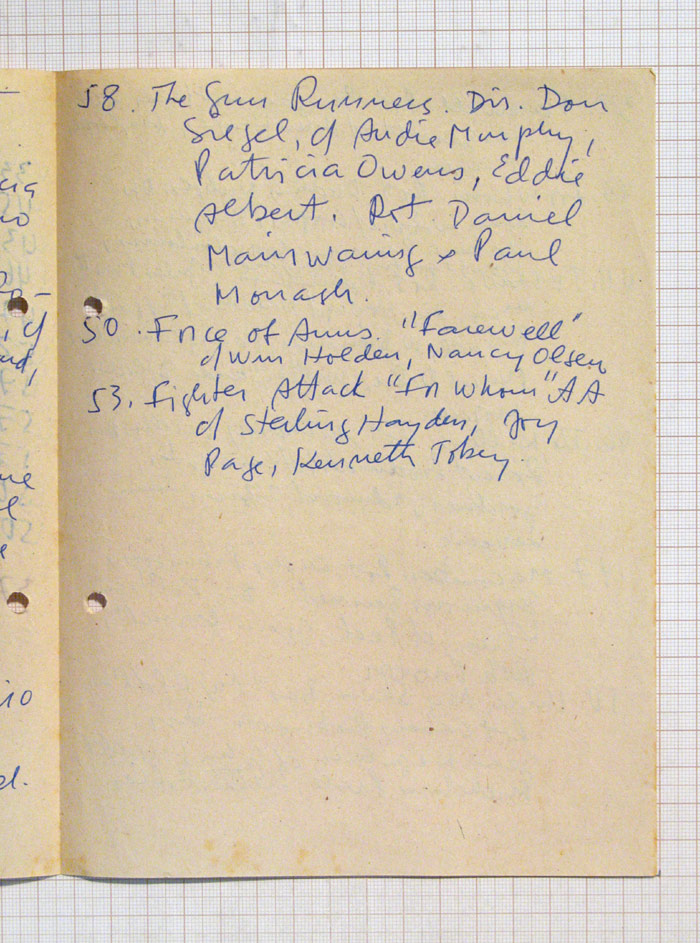 58. The Gun Runners. Dir. Don
Siegel, cf Audie Murphy,
Patricia Owens, Eddie
Albert. Rot Daniel
Mainwaring & Paul
Monash.
50. Force of Arms. "Farewell"
cf Wm Holden, Nancy Olsen
53. Fighter Attack "For Whom" AA
cf Sterling Hayden, Joy
Page, Kenneth Tobey.